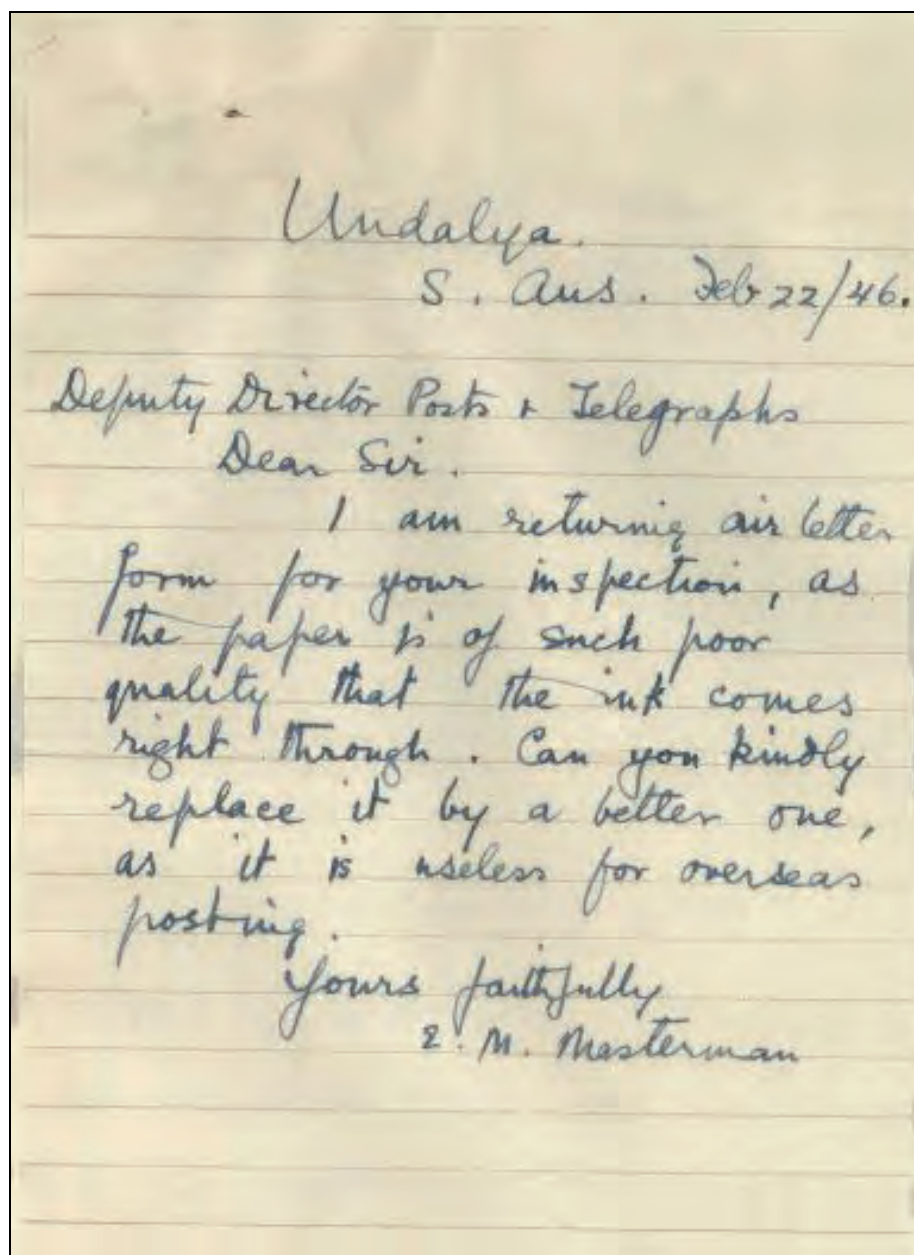 Undalya.
S. Aus. Feb 22/46.
Deputy Director Posts + Telegraphs
Dear Sir.
I am returning air letter
form for your inspection, as
the paper is of such poor
quality that the ink comes
right through. Can you kindly
replace it by a better one,
as it is useless for overseas
posting.
Yours faithfully
E. M. Masterman